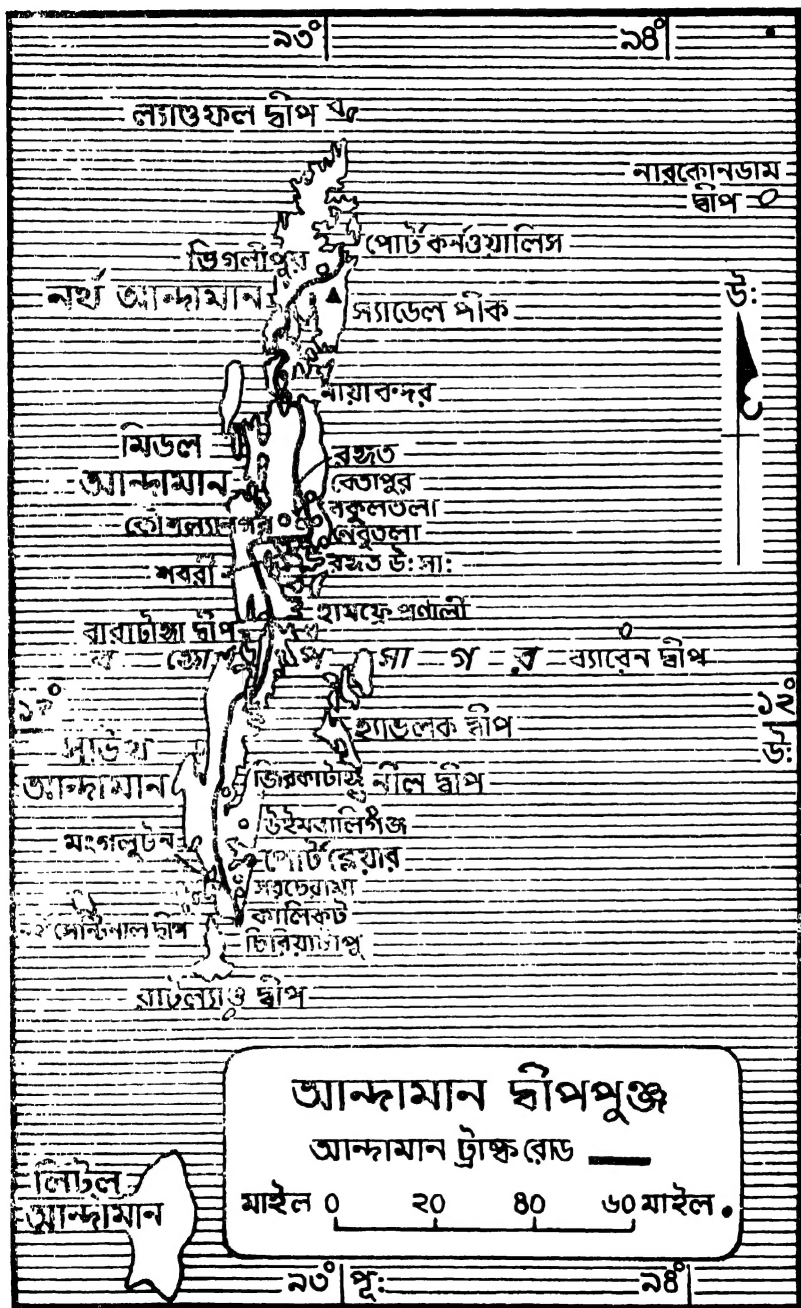 ৯৩°
৯৪°
ল্যাণ্ডফল দ্বীপ
নারকোনডাম
দ্বীপ
পোর্ট কর্নওয়ালিস
ডিগলীপুর
নর্থ আন্দামান
স্যাডেল পীক
উ:
মায়াবন্দর
মিডল
আন্দামান
রঙ্গত
বেতাপুর
বকুলতলা
কৌশল্যানগর
নিম্বুতলা
শবরী
রঙ্গত উ: সা:
হামফ্রে প্রণালী
বারাটাঙ্গ দ্বীপ
ব ঙ্গোপ সা গ র
ব্যারেন দ্বীপ
১২°
১২°
উ:
হ্যাভলক দ্বীপ
সাউথ
আন্দামান
জিরকাটাঙ্গ
নীল দ্বীপ
উইমবার্লিগঞ্জ
মংগলুটন
পোর্ট ব্লেয়ার
কালিকট
সেন্টিনাল দ্বীপ
চিরিয়াটাপু
রাটল্যাণ্ড দ্বীপ
আন্দামান দ্বীপপুঞ্জ
আন্দামান ট্রাঙ্ক রোড
মাইল ০ ২০ ৪০ ৬০ মাইল
লিটল
আন্দামান
৯৩° পূ:
৯৪°